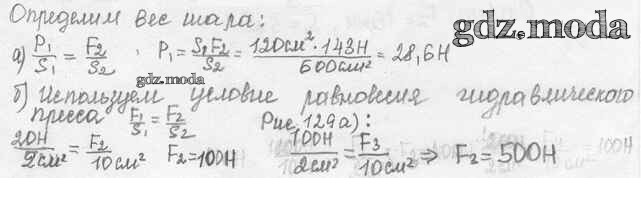 Определим вес шара:
gdz.moda
а) P₁/S₁ = F₂/S₂, P₁ = S₁F₂/S₂ = 120см²·143Н/600см² = 28,6Н
gdz.moda
б) Используем условие равновесия гидравлического
пресса F₁/S₁ = F₂/S₂ Рис. 129а):
20Н/2см² = F₂/10см² F₂=100Н 100Н/2см² = F₃/10см² ⇒ F₂ = 500Н